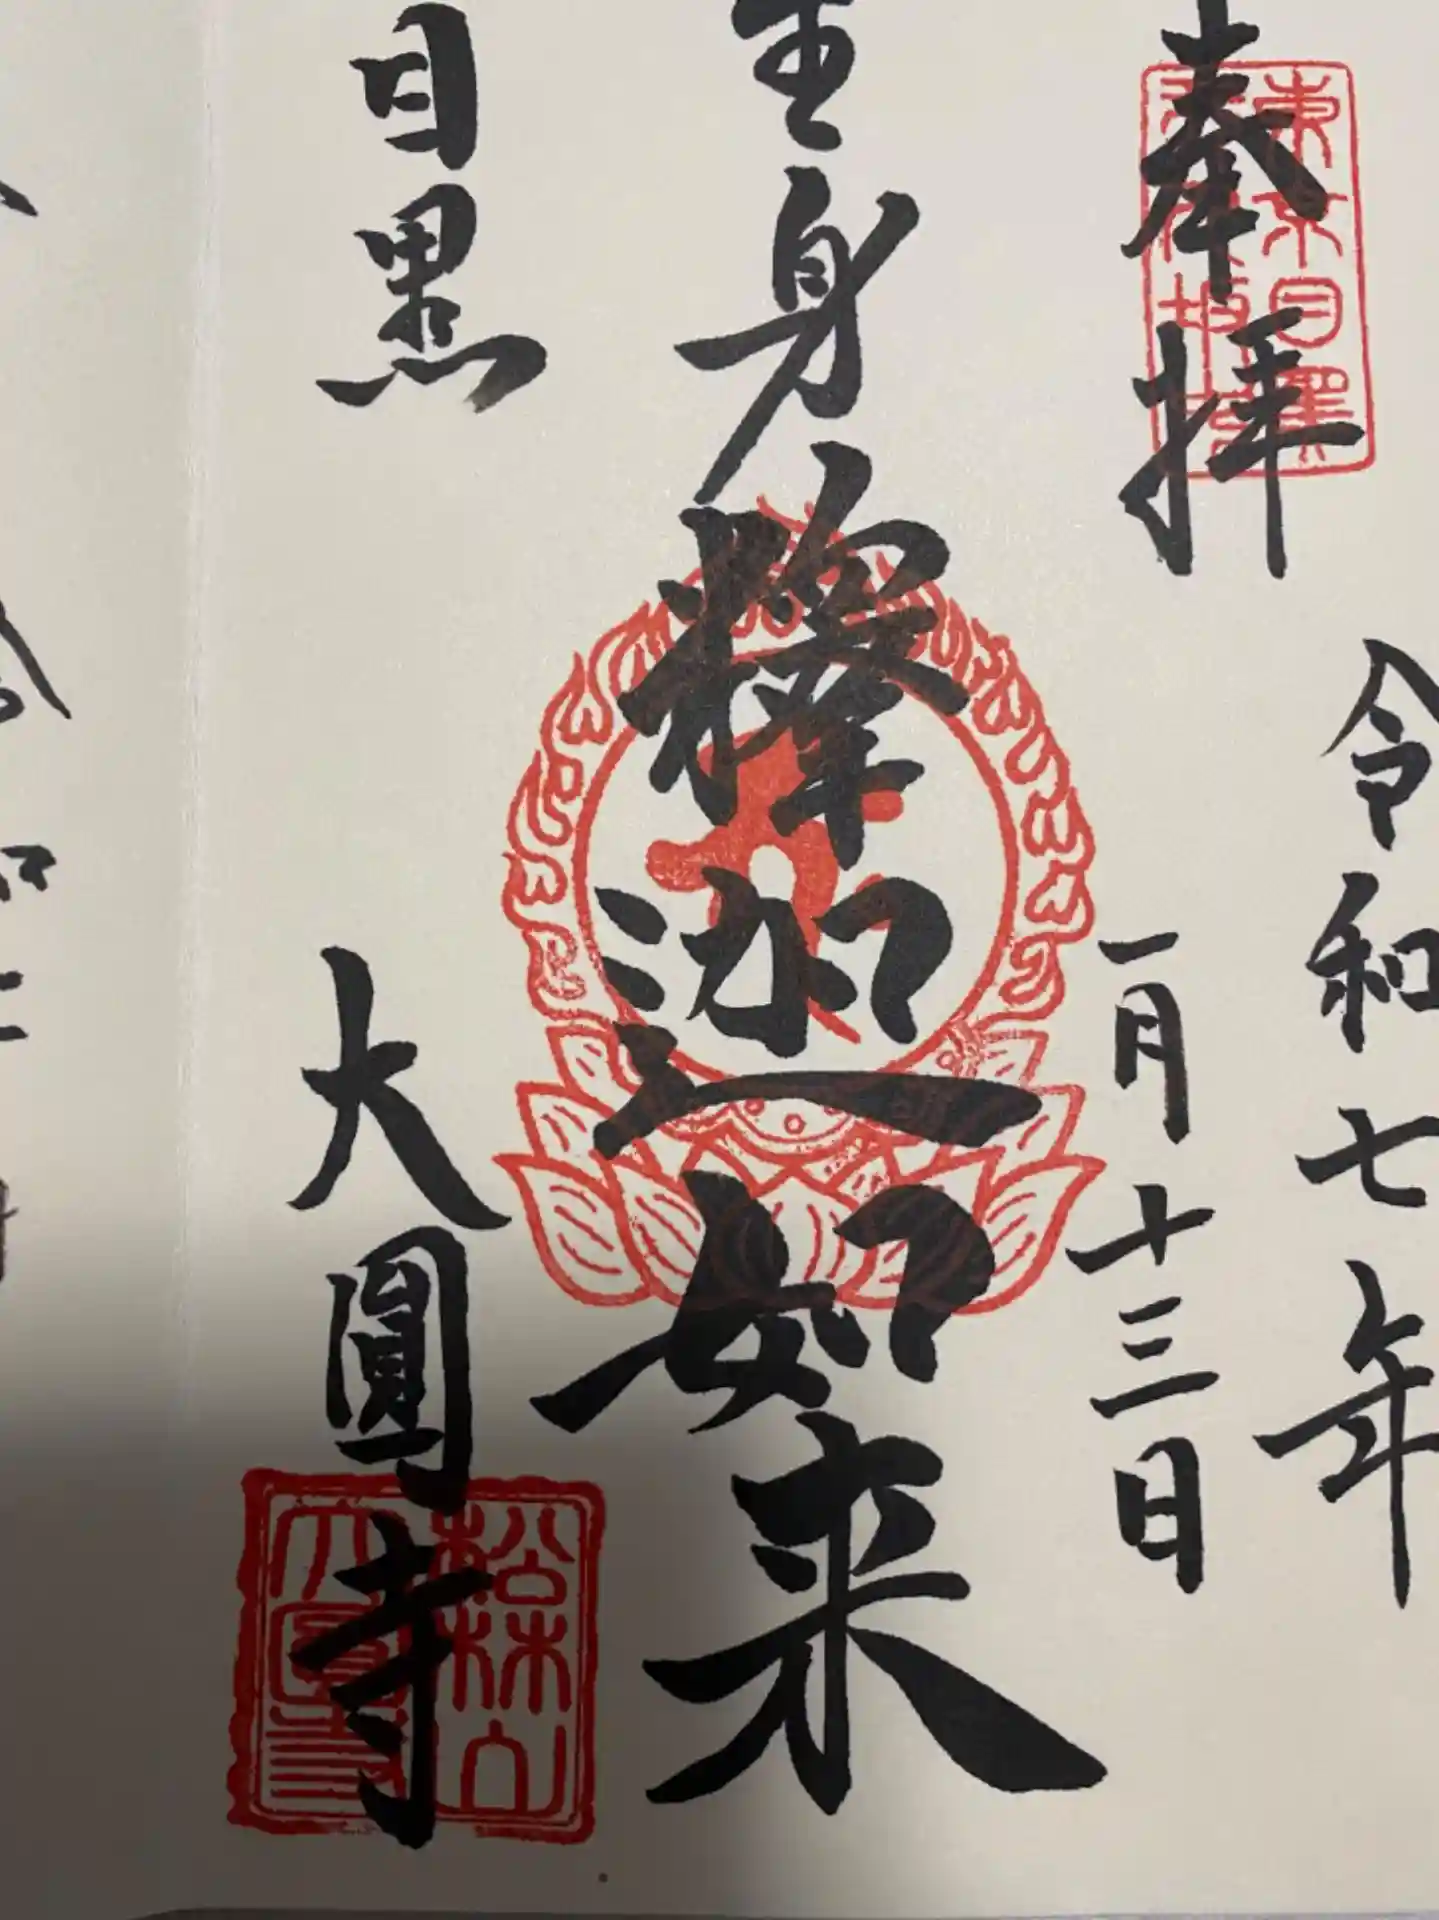 奉拝
令和七年
一月十三日
生身釋迦如来
目黒
大圓寺
東京目黒
松林山
大圓寺